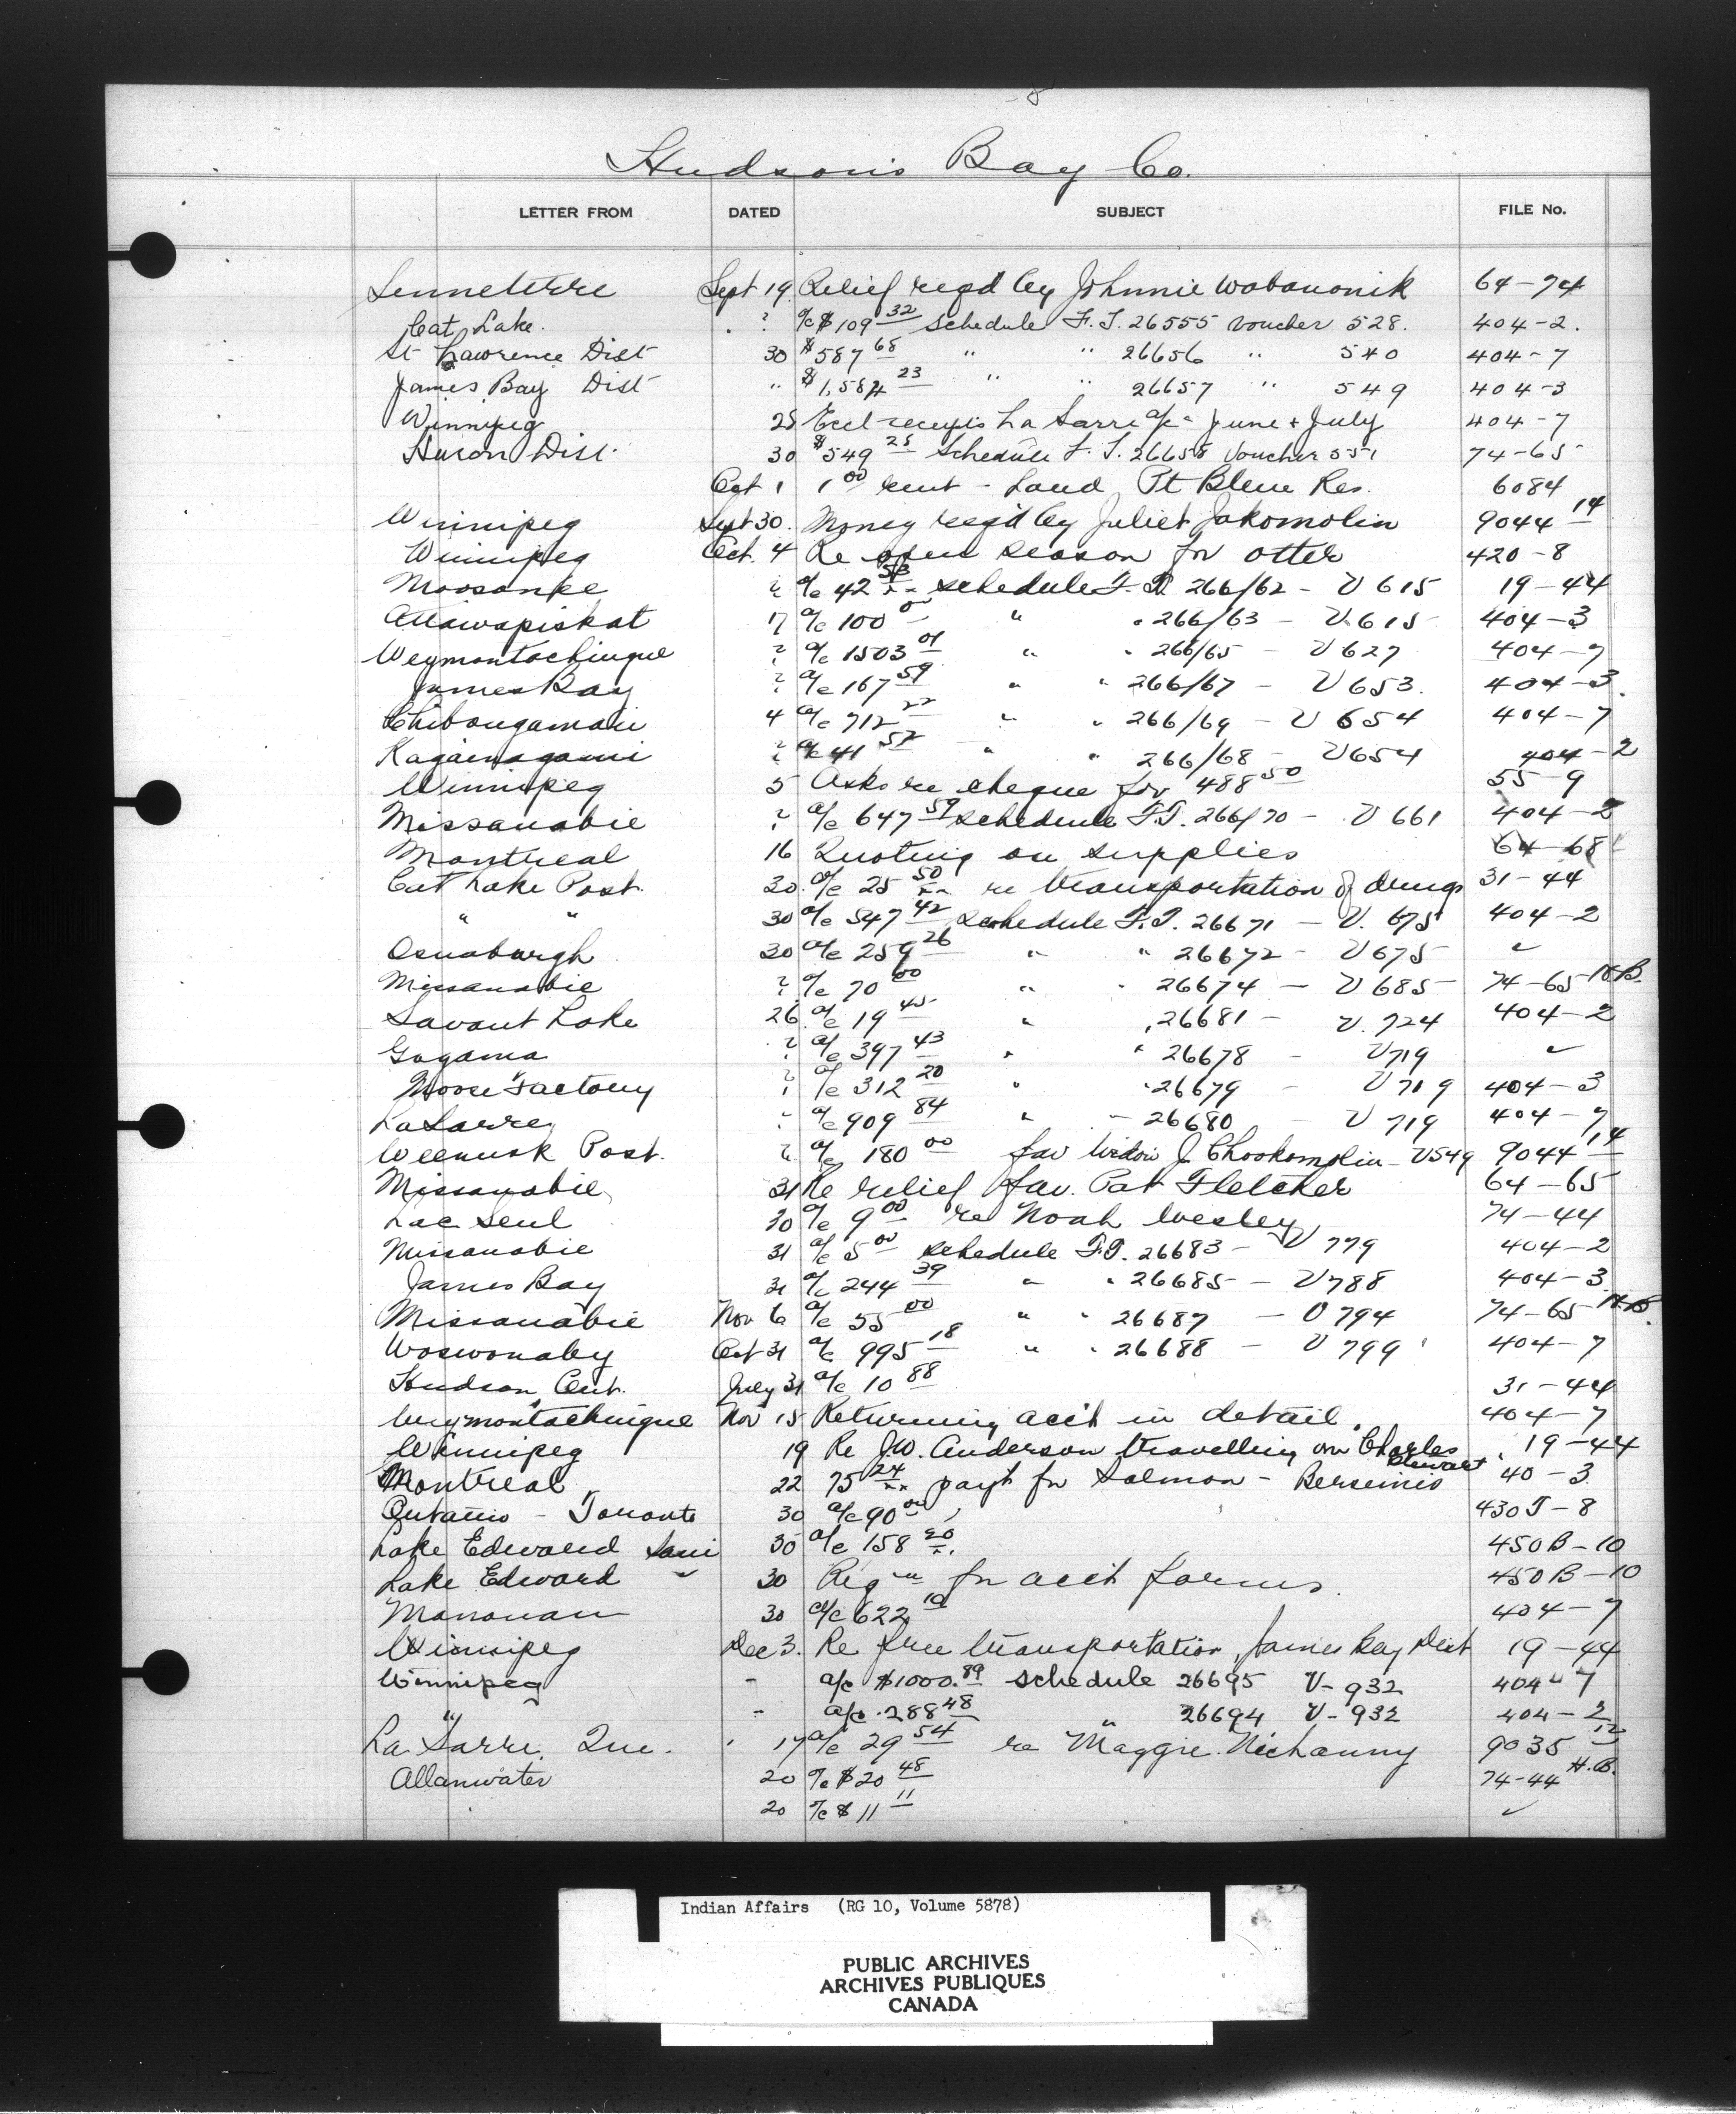 Hudson's Bay Co.
LETTER FROM DATED SUBJECT FILE No.
Senneterre Sept 19 Relief reqd by Johnnie Wabanonik 64-74
Cat Lake. " a/c $109 32 schedule F.T. 26555 voucher 528. 404-2.
St Lawrence Dist 30 $587 68 " " 26656 " 540 404-7
James Bay Dist " $1,584 23 " " 26657 " 549 404-3
Winnipeg 28 receipts La Sarre a/c June & July 404-7
Huron Dist. 30 $549 25 Schedule F.T. 26658 Voucher 551 74-65
Oct 1 1 00 rent - Land Pt Bleue Res. 6084
Winnipeg Sept 30. Money reqd by Juliet Jakomolin 9044 14
Winnipeg Oct. 4 Re open season for otter 420-8
Moosonee " a/c 42 schedule F.T. 266/62 - V 615 19-44
Attawapiskat 17 a/c 100 00 " " 266/63 - V 615 404-3
Weymontachingue " a/c 1503 01 " " 266/65 - V 627 404-7
James Bay " a/c 167 59 " " 266/67 - V 653. 404-3.
Chibougamau 4 a/c 712 22 " " 266/69 - V 654 404-7
Kagainagami " a/c 41 52 " " 266/68 - V 654 404-2
Winnipeg 5 Asks re cheque for 488 50 55-9
Missanabie " a/c 647 59 schedule F.T. 266/70 - V 661 404-2
Montreal 16 Quoting on supplies 64-68
Cat Lake Post. 30 a/c 25 50 re transportation of drugs 31-44
" " 30 a/c 547 42 schedule F.T. 26671 - V. 675 404-2
Osnaburgh 30 a/c 259 26 " " 26672 - V 675 ✓
Missanabie " a/c 70 00 " " 26674 - V 685 74-65 H.B.
Savant Lake 26 a/c 19 45 " " 26681 - V. 724 404-2
Gogama " a/c 397 43 " " 26678 - V 719 ✓
Moose Factory " a/c 312 20 " " 26679 - V 719 404-3
La Sarre " a/c 909 84 " " 26680 - V 719 404-7
Weenusk Post. " a/c 180 00 fav Widow J. Chookomolin - V549 9044 14
Missanabie 31 Re relief fav. Pat Fletcher 64-65
Lac Seul 30 a/c 9 00 re Noah Wesley 74-44
Missanabie 31 a/c 5 00 schedule F.T. 26683 - V 779 404-2
James Bay 31 a/c 244 39 " " 26685 - V 788 404-3
Missanabie Nov 6 a/c 55 00 " " 26687 - V 794 74-65 H.B.
Woswonaby Oct 31 a/c 995 18 " " 26688 - V 799 404-7
Hudson Ont. July 31 a/c 10 88 31-44
Weymontachingue Nov 15 Returning acct in detail. 404-7
Winnipeg 19 Re J.W. Anderson travelling on Charles Stewart 19-44
Montreal 22 75 24 payt for Salmon - Bersimis 40-3
Ontario - Toronto 30 a/c 90 00 430T-8
Lake Edward Sani 30 a/c 158 20 450B-10
Lake Edward " 30 Reqn for acct forms. 450B-10
Manouan 30 a/c 622 10 404-7
Winnipeg Dec 3. Re free transportation James Bay Dist 19-44
Winnipeg - a/c $1000.89 schedule 26695 V-932 404-7
" - a/c 288 48 " 26694 V-932 404-2
La Sarre, Que. 17 a/c 29 54 re Maggie Nichanny 9035 12
Allanwater 20 a/c $20 48 74-44 H.B.
20 a/c $11 11 ✓
Indian Affairs (RG 10, Volume 5878)
PUBLIC ARCHIVES
ARCHIVES PUBLIQUES
CANADA